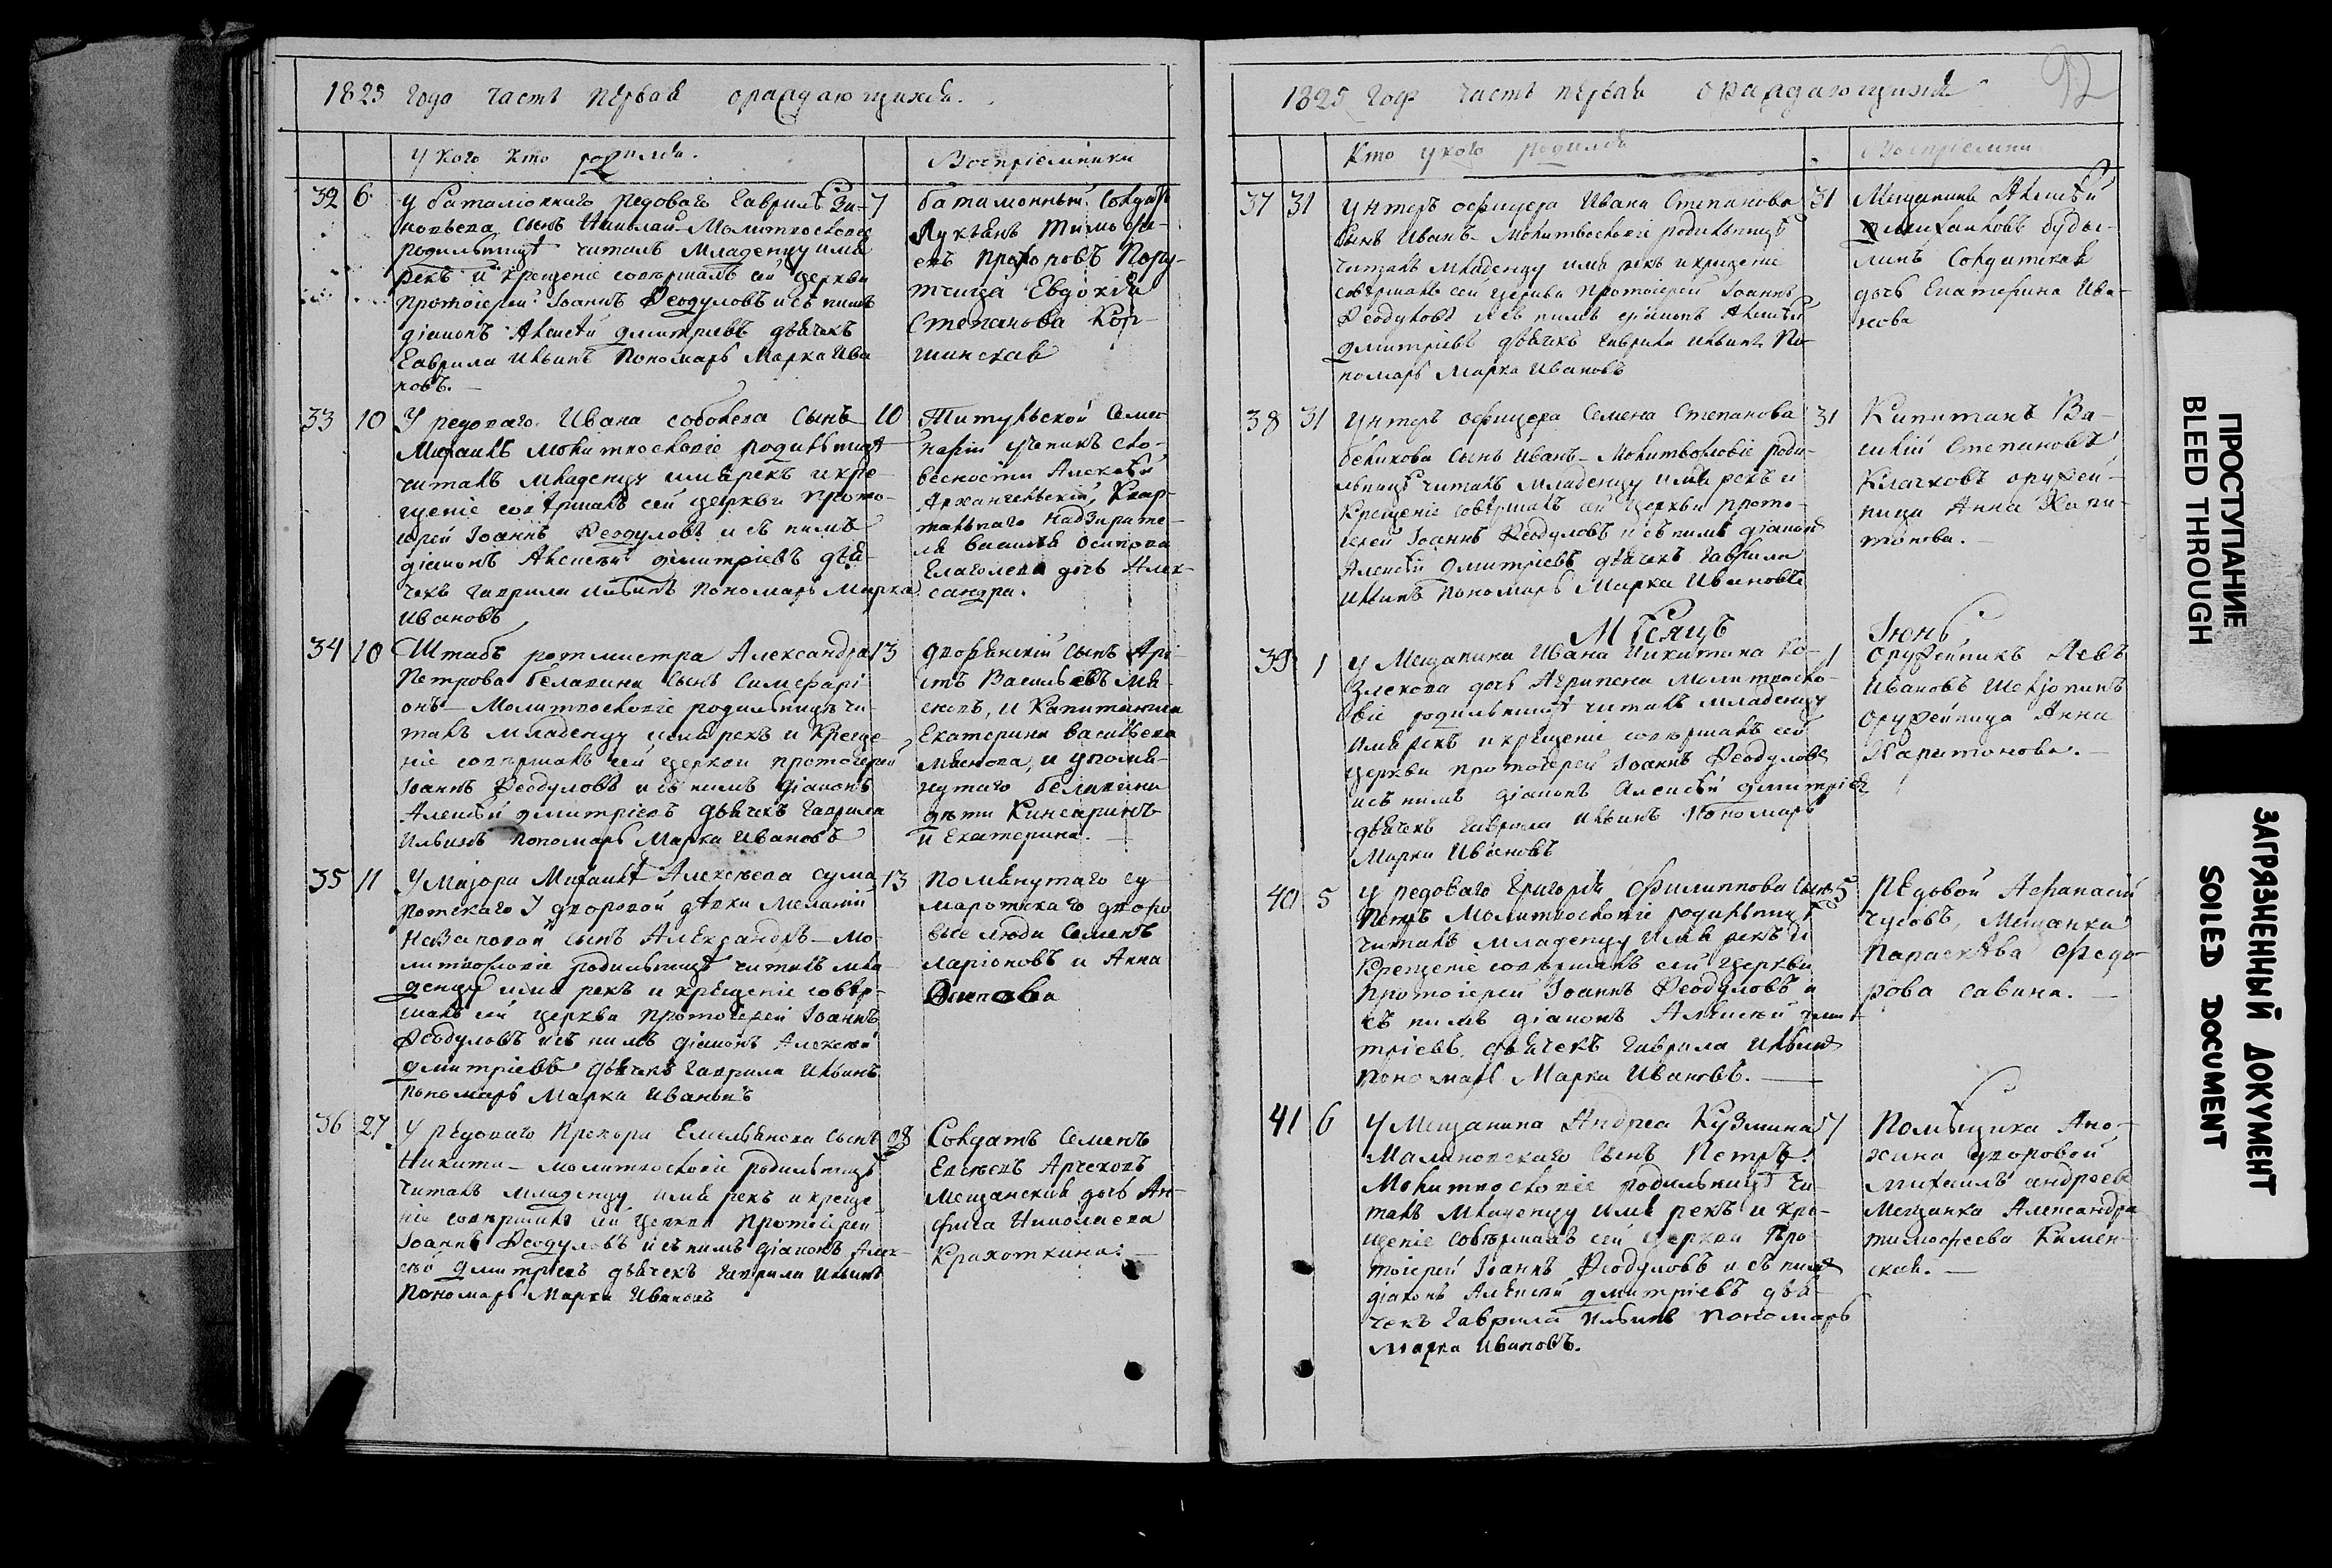 1825 года часть первая ораждающихся.
У кого кто родился.
Воспріемники
32 6 У баталіоннаго редоваго Гаврилѣ Зи- 7
новьева сынъ Николай - Молитвословіе
родильницѣ читалъ Младенцу имя
рекъ и крещеніе совѣршалъ сей церкви
протоіерей Іоаннъ Феодуловъ и съ нимъ
діаконъ Алексѣй Дмитріевъ дьячекъ
Гаврила Ильинъ Пономарь Марка Ива
новъ. —
баталіонный Солдатъ
Лукьянъ Тимофе-
евъ Прохоровъ Пору-
тчица Евдокія
Степанова Кор-
шинская
33 10 У редоваго Ивана соболева Сынъ 10
Михаилъ молитвословіе родильницѣ
читалъ младенцу имя рекъ и кре-
щеніе совѣршалъ сей церкви прото-
іерей Іоаннъ Феодуловъ и съ нимъ
діаконъ Алексѣй дмитріевъ дья-
чекъ Гаврила Ильинъ Пономарь Марка
Ивановъ
Тиτульской Семи
наріи ученикъ сло-
весности Алексѣй
Архангельскій, Квар-
тальнаго Надзирате-
ля василья осипова
Глаголева дочь Алек-
сандра.
34 10 Штабъ ротмистра Александра 13
Петрова белавина сынъ Симфарі-
онъ — Молитвословіе родильницѣ чи-
талъ младенцу имя рекъ и креще-
ніе совѣршалъ сей церкви протоіерей
Іоаннъ Феодуловъ и съ нимъ діаконъ
Алексѣй дмитріевъ дьячекъ Гаврила
Ильинъ пономарь Марка Ивановъ
дворянскій сынъ
Васильевъ Мя-
сновъ, и Капитанша
Екатерина васильева
мяснова, и упомя-
нутаго белавина
дѣти
и Екатерина. —
35 11 У Маіора Михаилѣ Алексѣева сума 13
ротскаго У дворовой дѣвки Меланіи
сынъ Александръ — Мо-
литвословіе родильницѣ читалъ мла-
денцу имя рекъ и крѣщеніе совѣр-
шалъ сей церкви протоіерей Іоаннъ
Феодуловъ и съ нимъ діаконъ Алексѣй
дмитріевъ дьячекъ гаврила Ильинъ
пономарь Марка Ивановъ
помянутаго су
маротскаго дворо
вые люди Семенъ
ларіоновъ и Анна
36 27 У рѣдоваго Прохора Емельянова сынъ 28
Никита — молитвословіе родильницѣ
читалъ младенцу имя рекъ и креще-
ніе совѣршалъ сей церкви протоіерей
Іоаннъ Феодуловъ и съ нимъ діаконъ Алек-
сѣй дмитріевъ дьячекъ гаврила Ильинъ
Пономарь Марка Ивановъ
Солдатъ Семенъ
Мещанская дочь Ан-
фиса Николаева
Крахоткина. —
1825 года часть первая ораждающихся
92
Кто у кого родился
Воспріемни
37 31 Унтеръ офицера Ивана Степанова 31
Сынъ Иванъ - Молитвословіе родильницѣ
читалъ младенцу имя рекъ и крещеніе
совѣршалъ сей церкви протоіерей Іоаннъ
Феодуловъ и съ нимъ діаконъ Алексѣй
дмитріевъ дьячекъ гаврила ильинъ По-
номарь Марка Ивановъ
Мещанинъ Алексѣй
Михайловъ буды-
линъ Солдатская
дочь Екатерина Ива-
нова
38 31 Унтеръ офицера Семена Степанова 31
беликова сынъ Иванъ - Молитвословіе роди-
льницѣ читалъ Младенцу имя рекъ и
Крещеніе совѣршалъ сей церкви прото-
іерей Іоаннъ Феодуловъ и съ нимъ діаконъ
Алексѣй Дмитріевъ дьячекъ гаврила
Ильинъ Пономарь Марка Ивановъ
Капитанъ Ва-
силій Степановъ
Клачковъ оружей-
ница Анна Хари-
тонова. —
Мѣсяцъ Іюнь
39 1 У Мещанина Ивана Никитина Ко- 1
злекова дочь Агрипена Молитвосло-
віе родильницѣ читалъ младенцу
Имя рекъ и крещеніе совѣршалъ сей
церкви протоіерей Іоаннъ Феодуловъ
и съ нимъ діаконъ Алексѣй дмитріевъ
дьячекъ гаврила Ильинъ Пономарь
Марка Ивановъ
Оружейникъ Левъ
Ивановъ
оружейница Анна
Харитонова. —
40 5 У редоваго Григорія Филиппова сынъ 5
Петръ Молитвословіе родильницѣ
читалъ младенцу имя рекъ и
Крещеніе совѣршалъ сей церкви
Протоіерей Іоаннъ Феодуловъ и
съ нимъ діаконъ Алексѣй дми-
тріевъ. дьячекъ гаврила Ильинъ
пономарь Марка Ивановъ. —
Рѣдовой Афанасій
чусовъ, Мещанка
Параскѣва Федо-
рова савина. —
41 6 У Мещанина Андрея Кузмина 7
Малиновскаго сынъ Петръ.
Молитвословіе родильницѣ чи-
талъ Младенцу имя рекъ и кре-
щеніе совѣршалъ сей церкви Про-
тоіерей Іоаннъ Феодуловъ и съ нимъ
діаконъ Алексѣй дмитріевъ дья-
чекъ Гаврила Ильинъ пономарь
Марка Ивановъ.
Помѣщика Ано-
хина дворовой
михаилъ андреевъ
Мещанка Александра
тимофеева Камен-
ская. —
ПРОСТУПАНИЕ
BLEED THROUGH
ЗАГРЯЗНЕННЫЙ ДОКУМЕНТ
SOILED DOCUMENT